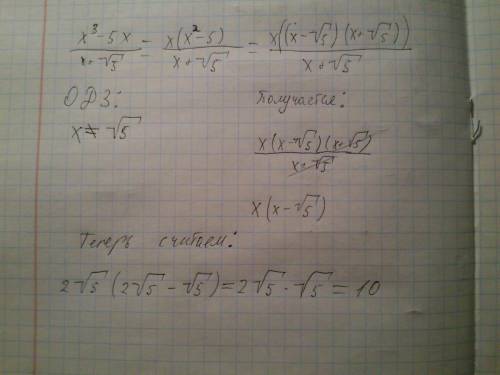 (x³ - 5x)/(x + √5) = x(x² - 5)/(x + √5) = x((x - √5)(x + √5))/(x + √5)
ОДЗ:
x ≠ √5
Получается:
x(x - √5)(x + √5)/(x + √5)
x(x - √5)
Теперь считаем:
2√5 (2√5 - √5) = 2√5 · √5 = 10